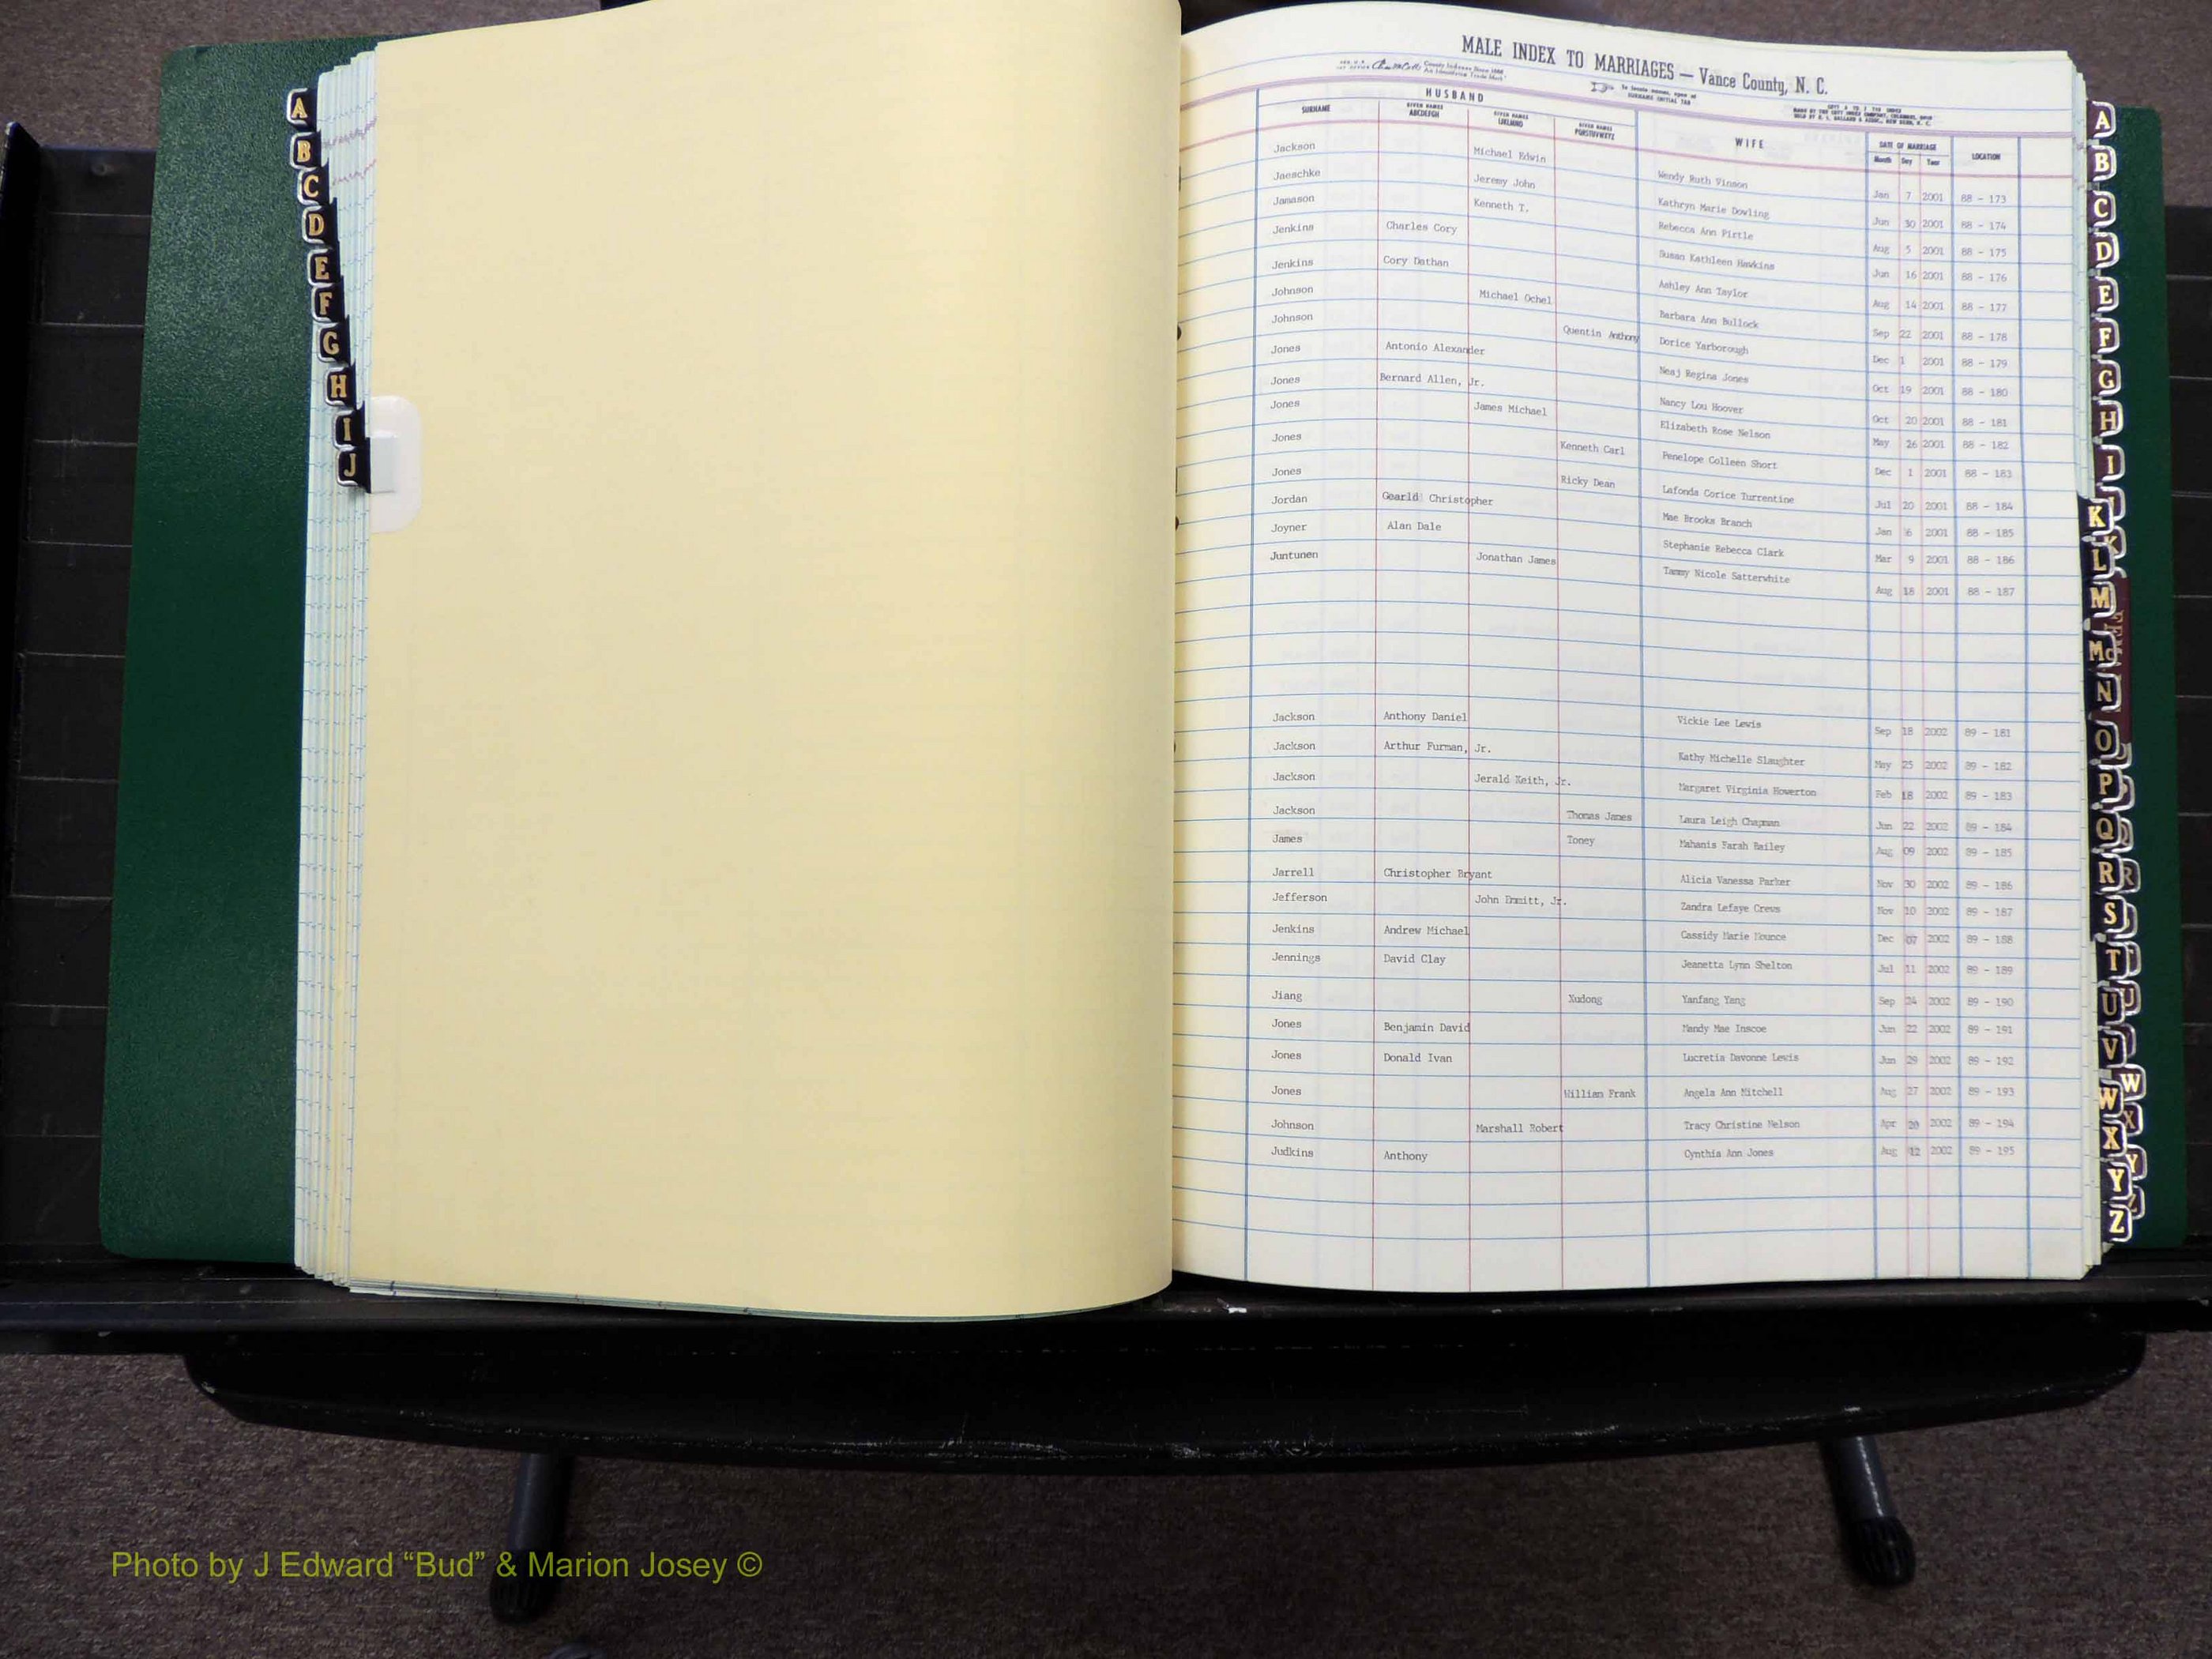 MALE INDEX TO MARRIAGES — Vance County, N. C.
County Indexes Since 1888
An Identifying Trade Mark
To locate names, open at
SURNAME INITIAL TAB
HUSBAND
SURNAME
GIVEN NAMES
ABCDEFGH
GIVEN NAMES
IJKLMNO
GIVEN NAMES
PQRSTUVWXYZ
WIFE
DATE OF MARRIAGE
Month Day Year
LOCATION
Jackson Michael Edwin Wendy Ruth Vinson Jan 7 2001 88 - 173
Jaeschke Jeremy John Kathryn Marie Dowling Jun 30 2001 88 - 174
Jamason Kenneth T. Rebecca Ann Pirtle Aug 5 2001 88 - 175
Jenkins Charles Cory Susan Kathleen Hawkins Jun 16 2001 88 - 176
Jenkins Cory Dathan Ashley Ann Taylor Aug 14 2001 88 - 177
Johnson Michael Ochel Barbara Ann Bullock Sep 22 2001 88 - 178
Johnson Quentin Anthony Dorice Yarborough Dec 1 2001 88 - 179
Jones Antonio Alexander Neaj Regina Jones Oct 19 2001 88 - 180
Jones Bernard Allen, Jr. Nancy Lou Hoover Oct 20 2001 88 - 181
Jones James Michael Elizabeth Rose Nelson May 26 2001 88 - 182
Jones Kenneth Carl Penelope Colleen Short Dec 1 2001 88 - 183
Jones Ricky Dean Lafonda Corice Turrentine Jul 20 2001 88 - 184
Jordan Gearld Christopher Mae Brooks Branch Jan 6 2001 88 - 185
Joyner Alan Dale Stephanie Rebecca Clark Mar 9 2001 88 - 186
Juntunen Jonathan James Tammy Nicole Satterwhite Aug 18 2001 88 - 187
Jackson Anthony Daniel Vickie Lee Lewis Sep 18 2002 89 - 181
Jackson Arthur Furman, Jr. Kathy Michelle Slaughter May 25 2002 89 - 182
Jackson Jerald Keith, Jr. Margaret Virginia Howerton Feb 18 2002 89 - 183
Jackson Thomas James Laura Leigh Chapman Jun 22 2002 89 - 184
James Toney Mahanis Farah Bailey Aug 09 2002 89 - 185
Jarrell Christopher Bryant Alicia Vanessa Parker Nov 30 2002 89 - 186
Jefferson John Emmitt, Jr. Zandra Lefaye Crews Nov 10 2002 89 - 187
Jenkins Andrew Michael Cassidy Marie Nounce Dec 07 2002 89 - 188
Jennings David Clay Jeanetta Lynn Shelton Jul 11 2002 89 - 189
Jiang Xudong Yanfang Yang Sep 24 2002 89 - 190
Jones Benjamin David Mandy Mae Inscoe Jun 22 2002 89 - 191
Jones Donald Ivan Lucretia Davonne Lewis Jun 29 2002 89 - 192
Jones William Frank Angela Ann Mitchell Aug 27 2002 89 - 193
Johnson Marshall Robert Tracy Christine Nelson Apr 20 2002 89 - 194
Judkins Anthony Cynthia Ann Jones Aug 12 2002 89 - 195
A
B
C
D
E
F
G
H
I
J
A
B
C
D
E
F
G
H
I
K
L
M
Mc
N
O
P
Q
R
S
T
U
V
W
X
Y
Z
Photo by J Edward “Bud” & Marion Josey ©